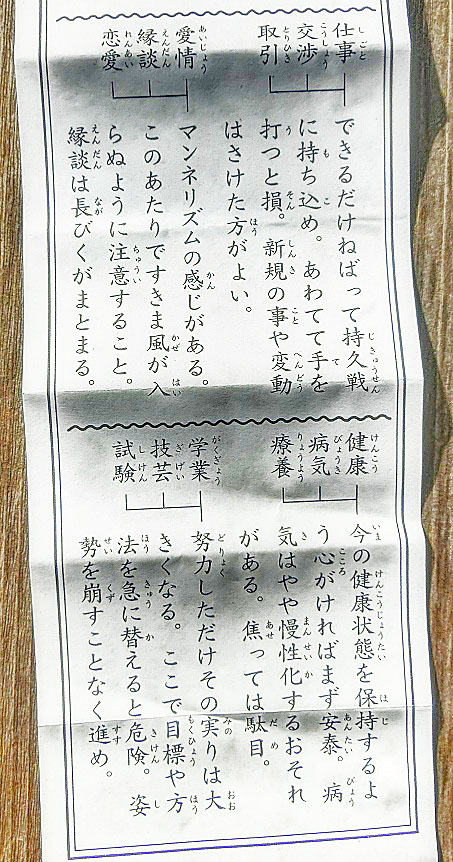 仕事
交渉
取引
できるだけねばって持久戦
に持ち込め。あわてて手を
打つと損。新規の事や変動
はさけた方がよい。
愛情
縁談
恋愛
マンネリズムの感じがある。
このあたりですきま風が入
らぬように注意すること。
縁談は長びくがまとまる。
健康
病気
療養
今の健康状態を保持するよ
う心がければまず安泰。病
気はやや慢性化するおそれ
がある。焦っては駄目。
学業
技芸
試験
努力しただけその実りは大
きくなる。ここで目標や方
法を急に替えると危険。姿
勢を崩すことなく進め。